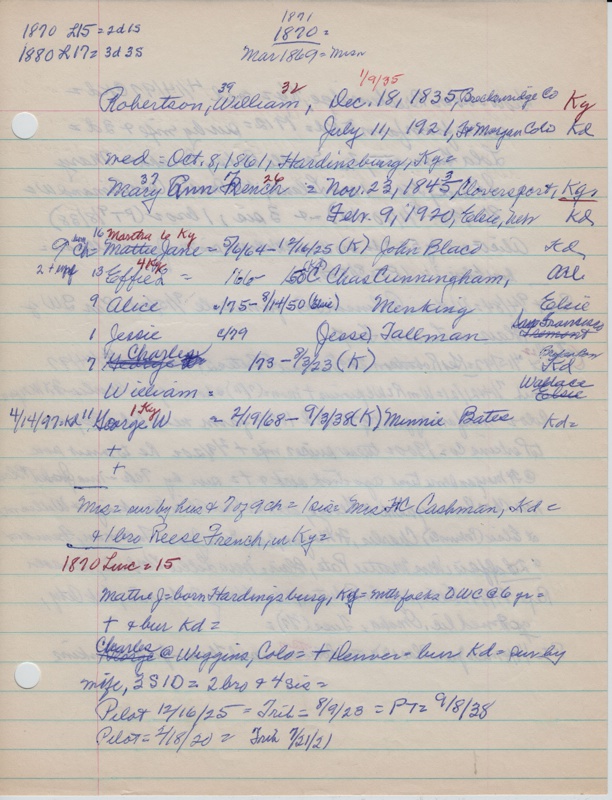 1871
1870 L15 = 2d1s
1870 =
1880 R17 = 3d 3s
Mar 1869 = Mssn
39 32 1/9/35
Robertson, William, Dec. 18, 1835, Breckinridge Co Ky
July 11, 1921, Ft Morgan Colo Kd
med = Oct. 8, 1861, Hardinsburg, Ky =
37 7 26 3
Mary Ann French = Nov. 23, 1845, Cloversport, Ky
Febr. 9, 1920, Elsie, Kd
16 Martha 6 Ky
9 Ch = Mattie Jane = 5/6/64 - 12/16/25 (K) John Black Kd
4 Ky
13 Effie L = 166 Chas Cunningham,
9 Alice = 175 - 8/14/50 (Elsie) Menking Elsie
San Francisco
1 Jessie 4/79 Jesse Tallman
Charles
7 George 173 - 8/3/23 (K) Kd
Wallace
William = Elsie
1 Ky
4/14/97 = Kd 11 George W = 2/19/68 - 9/3/38 (K) Minnie Bates Kd =
+
+
Mrs = sur by hus & 7 of 9 ch = 1 sis = Mrs HC Cashman, Kd =
& 1 bro Reese French, in Ky =
1870 Linc = 15
Mattie J = born Hardingsburg, Ky = with folks DWC @ 6 yr =
+ & bur Kd =
Charles
George @ Wiggins, Colo = + Denver = bur Kd = sur by
wife, 3S 1D = 2 bro & 4 sis =
Pilot 12/16/25 = Trib = 8/9/23 = PT = 9/8/38
Pilot = 2/18/20 = Trib 7/21/21